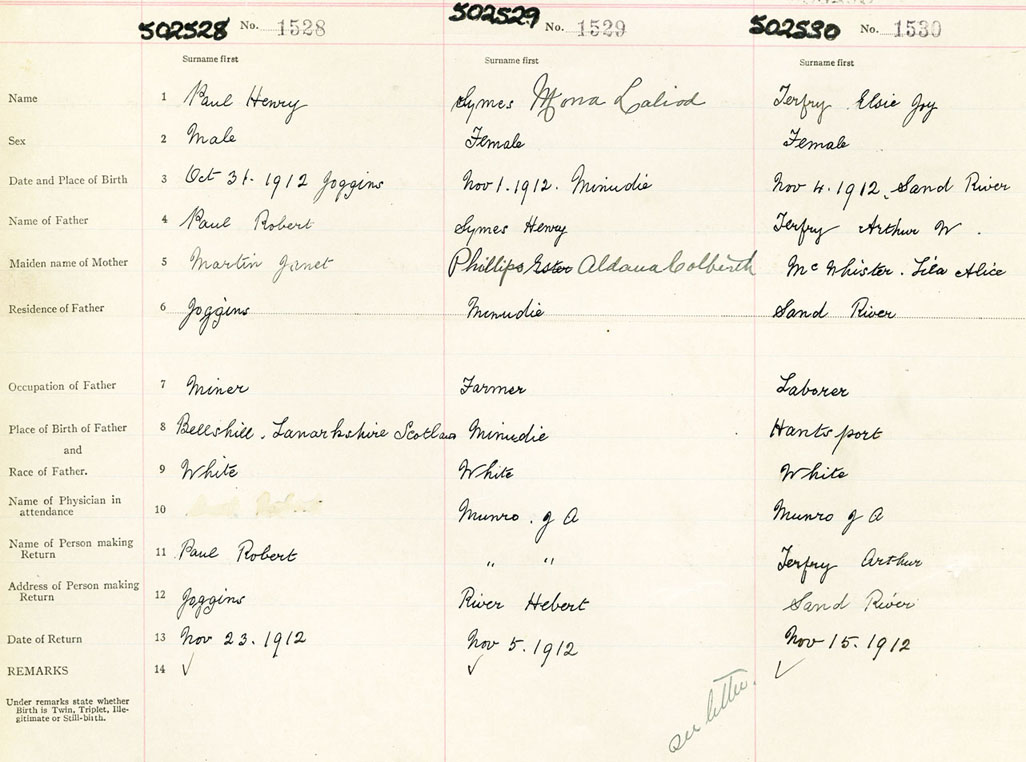 502528 No. 1528 502529 No. 1529 502530 No. 1530
Surname first Surname first Surname first
Name 1 Paul Henry Symes Mona Terfry Elsie Joy
Sex 2 Male Female Female
Date and Place of Birth 3 Oct 31. 1912 Joggins Nov 1. 1912. Minudie Nov 4. 1912. Sand River
Name of Father 4 Paul Robert Symes Henry Terfry Arthur W.
Maiden name of Mother 5 Martin Janet Phillips Ester Aldana Colberth Mc Whister. Lila Alice
Residence of Father 6 Joggins Minudie Sand River
Occupation of Father 7 Miner Farmer Laborer
Place of Birth of Father 8 Bellshill, Lanarkshire Scotland Minudie Hantsport
and
Race of Father. 9 White White White
Name of Physician in
attendance 10 Munro. J A Munro J A
Name of Person making
Return 11 Paul Robert " " Terfry Arthur
Address of Person making
Return 12 Joggins River Hebert Sand River
Date of Return 13 Nov 23. 1912 Nov 5. 1912 Nov 15. 1912
REMARKS 14 ✓ ✓ ✓
Under remarks state whether
Birth is Twin, Triplet, Ille-
gitimate or Still-birth.
see letter.